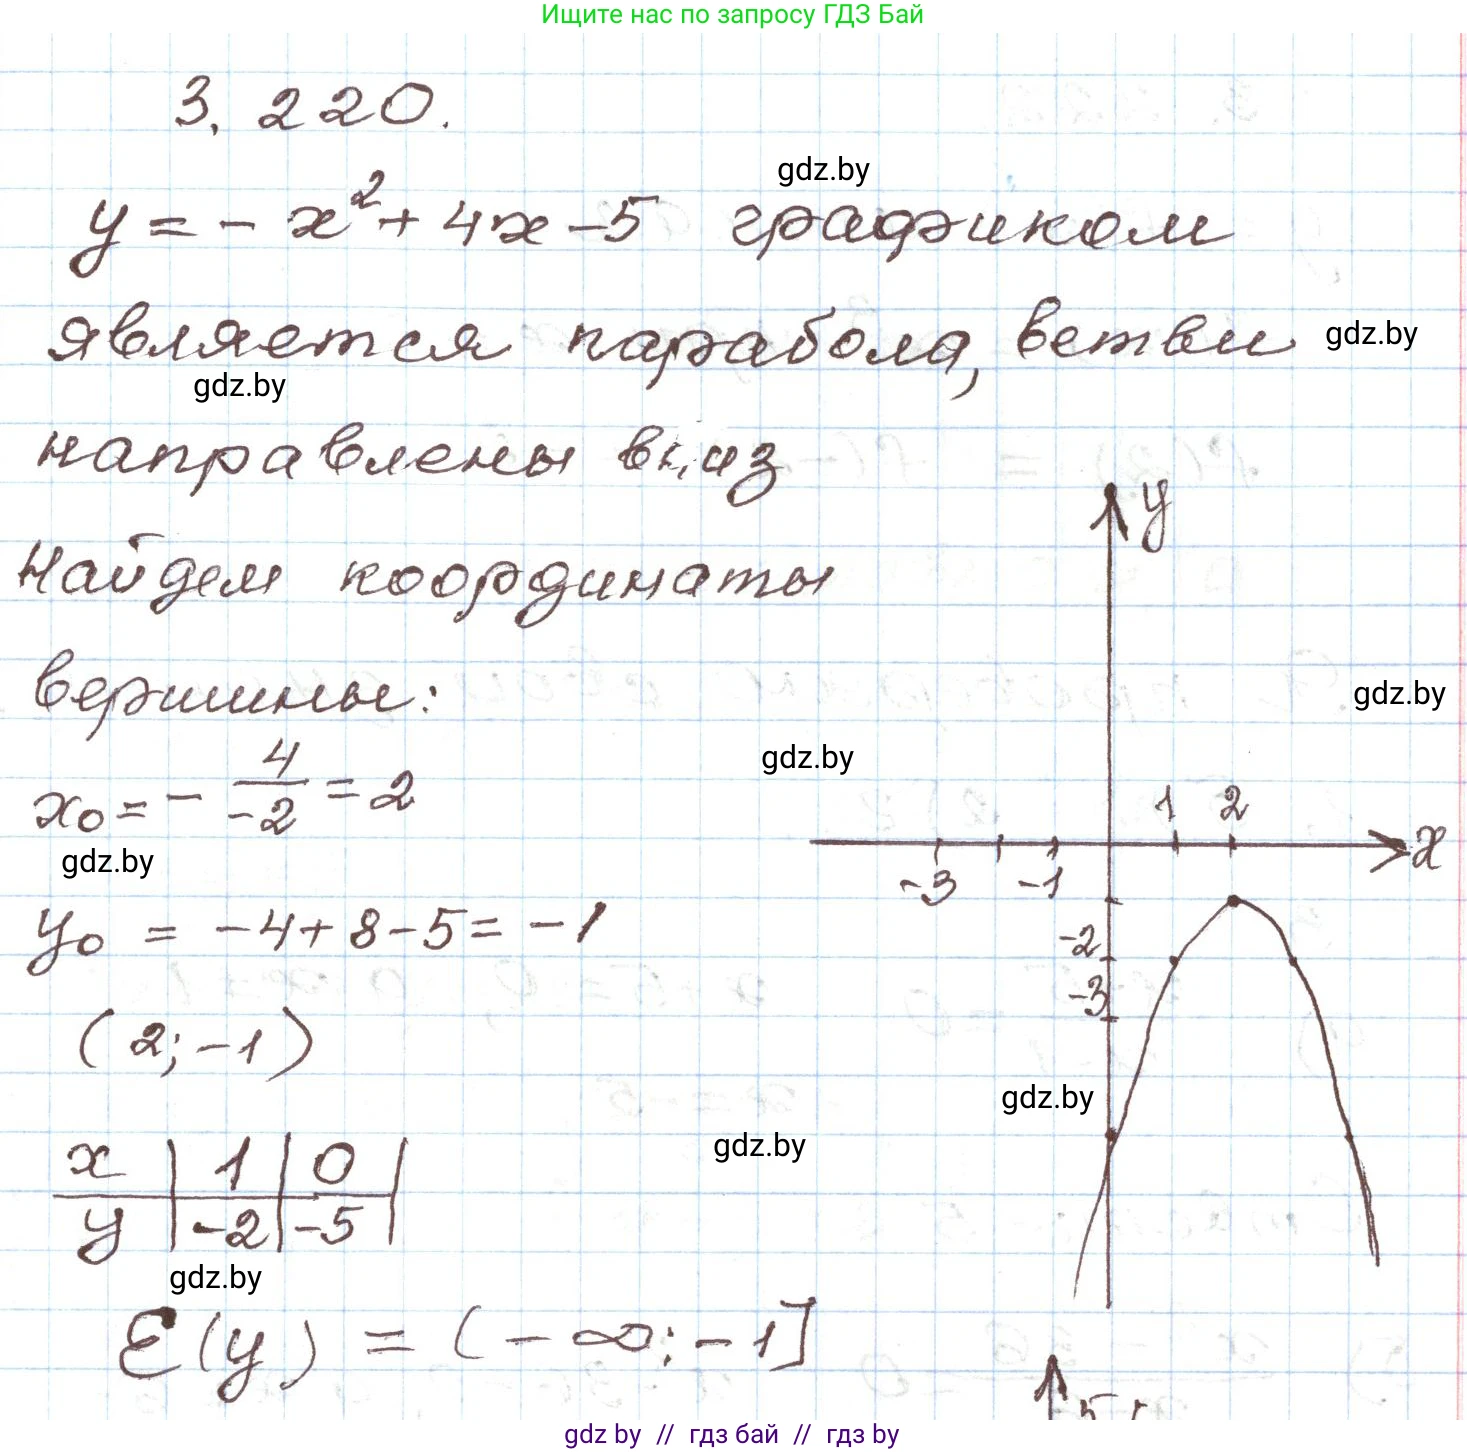 Ищите нас по запросу ГДЗ Бай
3.220.
gdz.by
y = - x² + 4x - 5 графиком
является парабола, ветви
gdz.by
gdz.by
направлены вниз
y
Найдем координаты
вершины:
gdz.by
gdz.by
x₀ = - 4/-2 = 2
1 2
x
gdz.by
-3 -1
y₀ = -4 + 8 - 5 = -1
-2
-3
(2; -1)
gdz.by
gdz.by
x | 1 | 0 |
y | -2 | -5 |
gdz.by
E(y) = (-∞; -1]
gdz by // гдз бай // гдз by